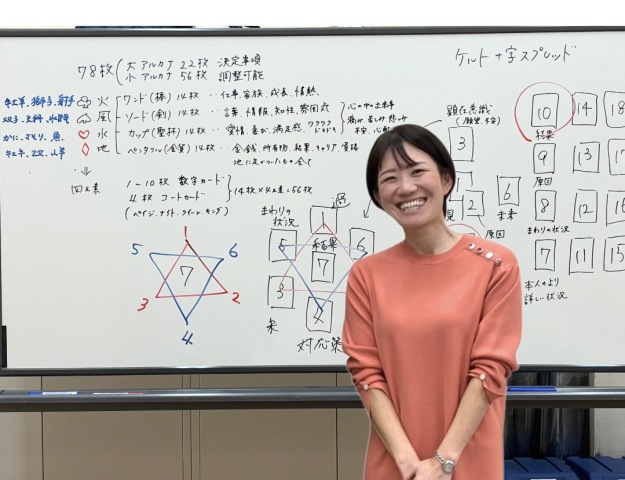 78枚 大アルカナ 22枚 決定事項
小アルカナ 56枚 調整可能
ケルト十字スプレッド
牡羊、獅子、射手 火 ワンド(棒) 14枚 ‥ 仕事、家族、成長、情熱
双子、天秤、水瓶 風 ソード(剣) 14枚 ‥ 言葉、情報、知性、雰囲気
かに、さそり、魚 水 カップ(聖杯) 14枚 ‥ 愛情、喜び、満足感、ワクワクドキドキ
地 ペンタクル(金貨) 14枚 ‥ 金銭、所有物、結果、キャリア、資格
心の中の出来事
痛み、苦しみ、悲しみ
四元素
1~10枚 数字カード
4枚 コートカード
14枚×4元素=56枚
(ペイジ、ナイト、クイーン、キング)
顕在意識
(願望、不安)
3
2
6
未来
原因
10
結果
9
原因
8
まわりの状況
7
本人のより
詳しい状況
14
13
12
11
18
17
16
15
1
5
6
7
3
2
4
まわりの状況
1
5
結果
6
7
3
4
対応策